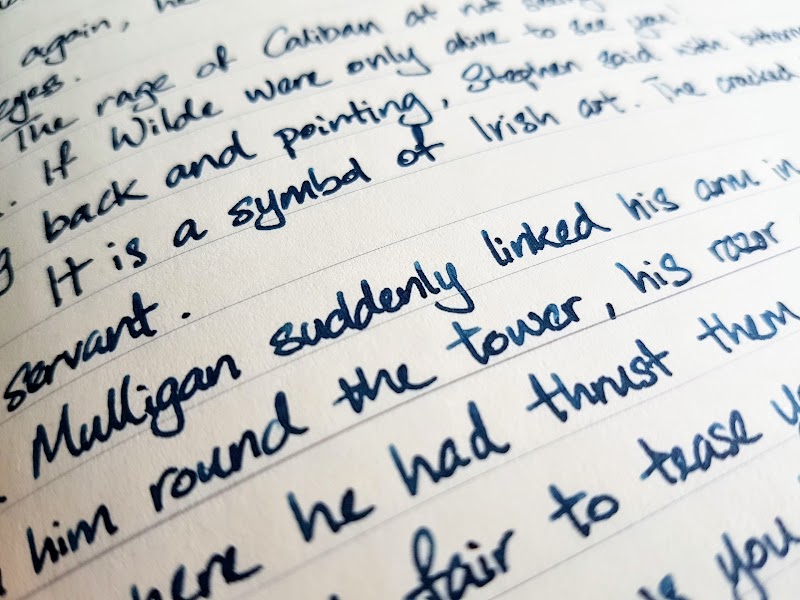 again, he
eyes.
The rage of Caliban at not
If Wilde were only alive to see you!
back and pointing, Stephen said with
It is a symbol of Irish art. The cracked
servant.
Mulligan suddenly linked his arm in
him round the tower, his razor
here he had thrust them
fair to tease
you